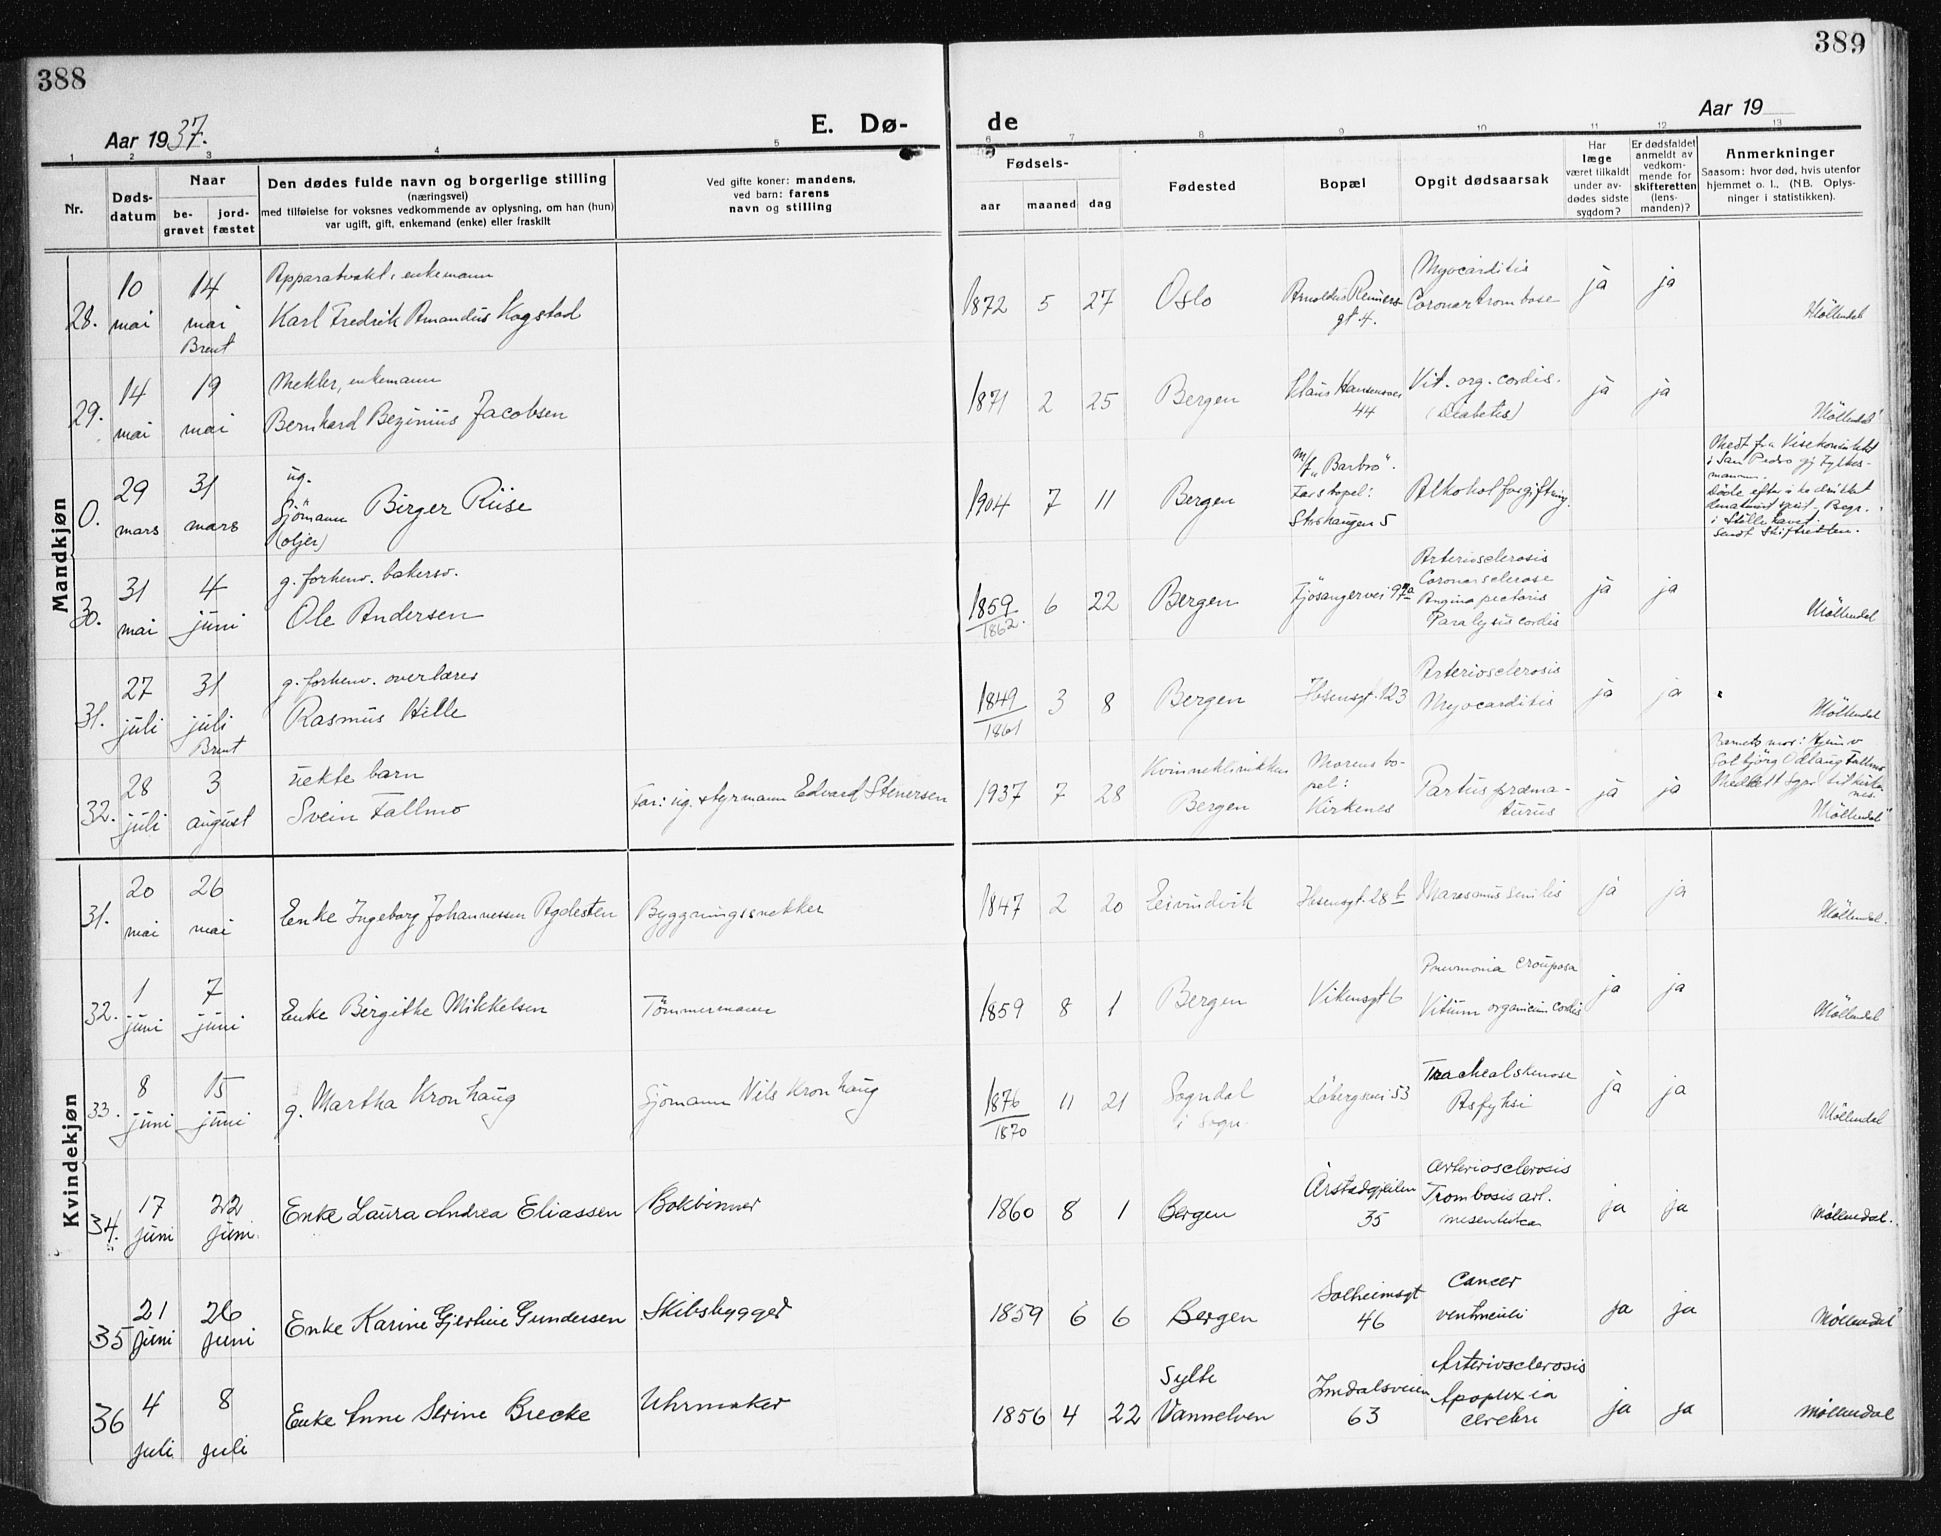 388
389
Aar 1937.
E. Dø-
de
Aar 19
1 2 3 4 5 6 7 8 9 10 11 12 13
Nr.
Døds-
datum
Naar
be-
gravet
jord-
fæstet
Den dødes fulde navn og borgerlige stilling
(næringsvei)
med tilføielse for voksnes vedkommende av oplysning, om han (hun)
var ugift, gift, enkemand (enke) eller fraskilt
Ved gifte koner: mandens,
ved barn: farens
navn og stilling
Fødsels-
aar maaned dag
Fødested
Bopæl
Opgit dødsaarsak
Har
læge
været tilkaldt
under av-
dødes sidste
sygdom?
Er dødsfaldet
anmeldt av
vedkom-
mende for
skifteretten
(lens-
manden)?
Anmerkninger
Saasom: hvor død, hvis utenfor
hjemmet o. l., (NB. Oplys-
ninger i statistikken).
Mandkjøn
28.
10
mai
14
mai
Brent
Apparatvakt, enkemann
Karl Fredrik Amandus Kogstad
1872 5 27
Oslo
Arnoldus Reimers
gt 4.
Myocarditis
Coronartrombose
ja ja
Møllendal
29.
14
mai
19
mai
Mekler, enkemann
Bernhard Beginius Jacobsen
1871 2 25
Bergen
Klaus Hansensvei
44
Vit. org. cordis.
(Diabetis)
ja ja
Møllendal
0.
29
mars
31
mars
ug.
Sjömann Birger Riise
(oljer)
1904 7 11
Bergen
m/t "Barbro".
Fars bopel:
Storhaugen 5
Alkoholforgiftning.
Medt fra Visekonsulatet
i San Pedro gj. Fylkes-
mannen.
Døde efter å ha drukket
denaturert sprit. Begr.
i Stillehavet.
Sendt Skifteretten.
30.
31
mai
4
juni
g. forhenv. bakersv.
Ole Andersen
1859
1862.
6 22
Bergen
Fjösangervei 97a
Arteriosclerosis
Coronarsclerose
Angina pectoris
Paralysis cordis
ja ja
Møllendal
31.
27
juli
31
juli
Brent
g. forhenv. overlærer
Rasmus Hille
1849
1861
3 8
Bergen
Ibsensgt. 123
Arteriosclerosis
Myocarditis
ja ja
Møllendal
32.
28
juli
3
august
uekte barn
Svein Fallmo
Far: ug. styrmann Edvard Stenersen
1937 7 28
Kvinneklinikken
Bergen
Morens bo-
pel:
Kirkenes
Partus præma-
turus
ja ja
Barnets mor: Hjemv
Solbjörg Odlaug Fallmo
Møllendal
Kvindekjøn
31.
20
mai
26
mai
Enke Ingeborg Johannessen Agdesten
Byggningssnekker
1847 2 20
Eivindvik
Ibsensgt. 28 b
Marasmus senilis
ja ja
Møllendal.
32.
1
juni
7
juni
Enke Birgithe Mikkelsen
Tømmermann
1859 8 1
Bergen
Vikensgt 6
Pneumonia crouposa
Vitium organicum cordis
ja ja
Møllendal
33.
8
juni
15
juni
g. Martha Kronhaug
Sjømann Nils Kronhaug
1876
1870
11 21
Sogndal
i Sogn.
Löbergsvei 53
Trachealstenose
Asfyksi
ja ja
Møllendal
34.
17
juni
22
juni.
Enke Laura Andrea Eliassen
Bokbinner
1860 8 1
Bergen
Årstadgjeilen
35
Arteriosclerosis
Trombosis art.
mesenterica
ja ja
Møllendal.
35
21
juni
26
juni
Enke Karine Gjertine Gundersen
Skibsbygger
1859 6 6
Bergen
Solheimsgt
46
Cancer
ventriculi
ja ja
Møllendal
36
4
juli
8
juli
Enke Anne Serine Brecke
Uhrmaker
1856 4 22
Sylte
Vannelven
Inndalsveien
63
Arteriosclerosis
Apoplexia
cerebri
ja ja
Møllendal